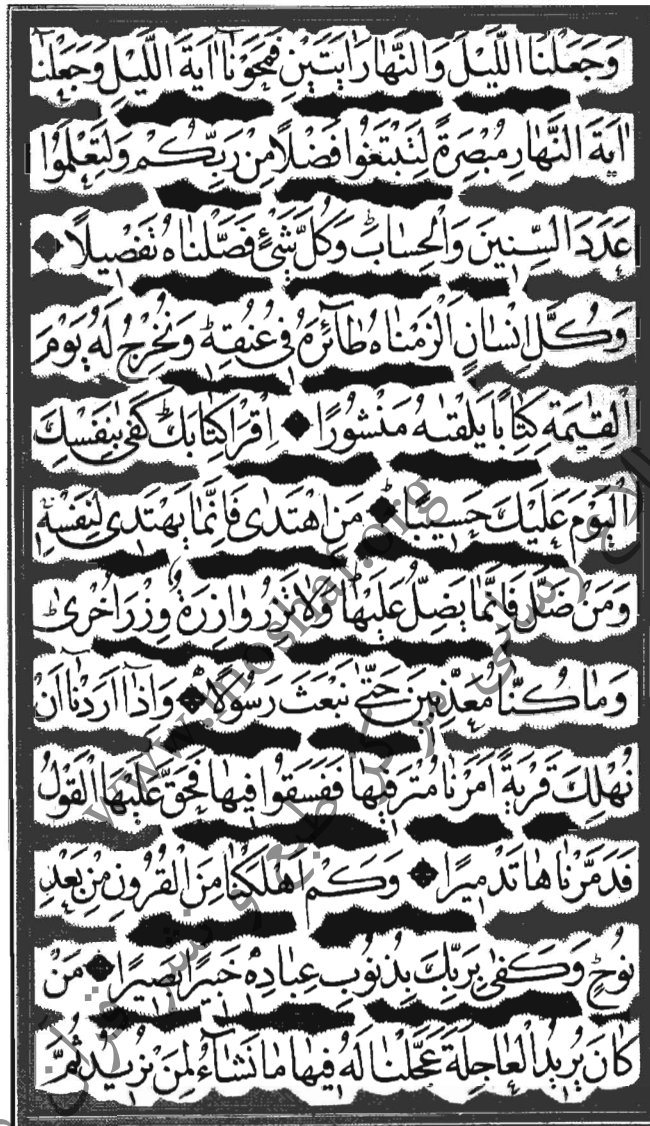 وَجَعَلْنَا اللَّيْلَ وَالنَّهَارَ اٰيَتَيْنِ فَمَحَوْنَٓا اٰيَةَ اللَّيْلِ وَجَعَلْنَٓا
اٰيَةَ النَّهَارِ مُبْصِرَةً لِتَبْتَغُوا فَضْلًا مِنْ رَبِّكُمْ وَلِتَعْلَمُوا
عَدَدَ السِّنٖينَ وَالْحِسَابَؕ وَكُلَّ شَىْءٍ فَصَّلْنَاهُ تَفْصٖيلًا ◆
وَكُلَّ اِنْسَانٍ اَلْزَمْنَاهُ طَٓائِرَهُ فٖى عُنُقِهٖؕ وَنُخْرِجُ لَهُ يَوْمَ
الْقِيٰمَةِ كِتَابًا يَلْقٰيهُ مَنْشُورًا ◆ اِقْرَاْ كِتَابَكَؕ كَفٰى بِنَفْسِكَ
الْيَوْمَ عَلَيْكَ حَسٖيبًاؕ ◆ مَنِ اهْتَدٰى فَاِنَّمَا يَهْتَدٖى لِنَفْسِهٖۚ
وَمَنْ ضَلَّ فَاِنَّمَا يَضِلُّ عَلَيْهَاؕ وَلَا تَزِرُ وَازِرَةٌ وِزْرَ اُخْرٰىؕ
وَمَا كُنَّا مُعَذِّبٖينَ حَتّٰى نَبْعَثَ رَسُولًا ◆ وَاِذَٓا اَرَدْنَٓا اَنْ
نُهْلِكَ قَرْيَةً اَمَرْنَا مُتْرَفٖيهَا فَفَسَقُوا فٖيهَا فَحَقَّ عَلَيْهَا الْقَوْلُ
فَدَمَّرْنَاهَا تَدْمٖيرًا ◆ وَكَمْ اَهْلَكْنَا مِنَ الْقُرُونِ مِنْ بَعْدِ
نُوحٍؕ وَكَفٰى بِرَبِّكَ بِذُنُوبِ عِبَادِهٖ خَبٖيرًا بَصٖيرًا ◆ مَنْ
كَانَ يُرٖيدُ الْعَاجِلَةَ عَجَّلْنَا لَهُ فٖيهَا مَا نَشَٓاءُ لِمَنْ نُرٖيدُ ثُمَّ
www.moshaf.org